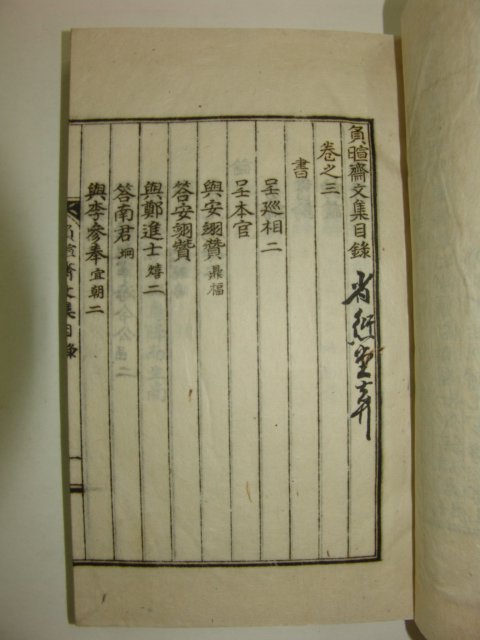 負暄齋文集目錄
卷之三
書
呈巡相二
呈本官
與安翊贊鼎福
答安翊贊
與鄭進士熺二
答南君垌
與李參奉宜朝二
負暄齋文集目錄